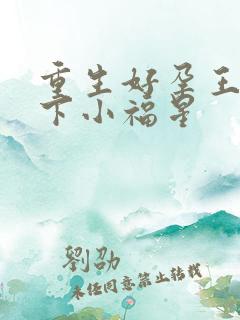 重生好孕王
下小福星
劉劭
未经同意禁止转载